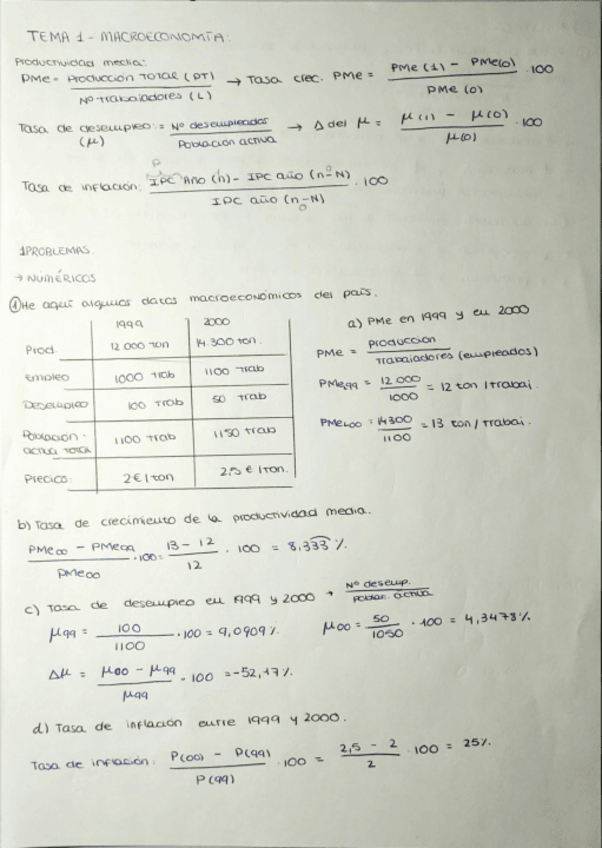 TEMA 1 - MACROECONOMÍA:
Productividad media:
PMe = Producción TOTAL (PT) / Nº Trabajadores (L) → Tasa crec. PMe = PMe (1) - PMe(0) / PMe (0) · 100
Tasa de desempleo := Nº desempleados / Población activa → Δ del μ = μ(1) - μ(0) / μ(0) · 100
(μ)
P
Tasa de inflación: IPC Año (n) - IPC año (n-N) / IPC año (n-N) · 100
1PROBLEMAS.
→ NUMÉRICOS
① He aquí algunos datos macroeconómicos del país.
1999 2000
Prod. 12 000 ton 14.300 ton.
Empleo 1000 trab 1100 trab
Desempleo 100 trab 50 trab
Población activa total 1100 trab 1150 trab
Precios: 2 €/ton 2,5 €/ton.
a) PMe en 1999 y en 2000
PMe = Producción / Trabajadores (empleados)
PMe99 = 12 000 / 1000 = 12 ton / trabaj.
PMe00 = 14300 / 1100 = 13 ton / trabaj.
b) Tasa de crecimiento de la productividad media.
PMe00 - PMe99 / PMe00 · 100 = 13 - 12 / 12 · 100 = 8,333 %.
c) Tasa de desempleo en 1999 y 2000 → Nº desemp. / Poblac. activa
μ99 = 100 / 1100 · 100 = 9,0909 %. μ00 = 50 / 1050 · 100 = 4,3478 %.
Δμ = μ00 - μ99 / μ99 · 100 = -52,17 %.
d) Tasa de inflación entre 1999 y 2000.
Tasa de inflación: P(00) - P(99) / P(99) · 100 = 2,5 - 2 / 2 · 100 = 25%.